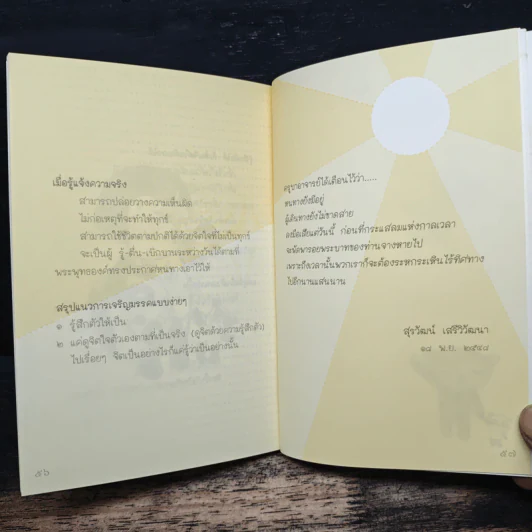 เมื่อรู้แจ้งความจริง
สามารถปล่อยวางความเห็นผิด
ไม่ก่อเหตุที่จะทำให้ทุกข์
สามารถใช้ชีวิตตามปกติได้ด้วยจิตใจที่ไม่เป็นทุกข์
จะเป็นผู้ รู้-ตื่น-เบิกบานระหว่างวันได้ตามที่
พระพุทธองค์ทรงประกาศหนทางเอาไว้ให้
สรุปแนวการเจริญมรรคแบบง่ายๆ
๑ รู้สึกตัวให้เป็น
๒ แค่ดูจิตใจตัวเองตามที่เป็นจริง (ดูจิตด้วยความรู้สึกตัว)
ไปเรื่อยๆ จิตเป็นอย่างไรก็แค่รู้ว่าเป็นอย่างนั้น
๕๖
ครูบาอาจารย์ได้เตือนไว้ว่า.....
หนทางยังมีอยู่
ผู้เดินทางยังไม่ขาดสาย
ลงมือเสียแต่วันนี้ ก่อนที่กระแสลมแห่งกาลเวลา
จะพัดพารอยพระบาทของท่านจางหายไป
เพราะถึงเวลานั้นพวกเราก็จะต้องระหกระเหินไร้ทิศทาง
ไปอีกนานแสนนาน
สุรวัฒน์ เสรีวิวัฒนา
๑๘ พ.ย. ๒๕๔๗
๕๗